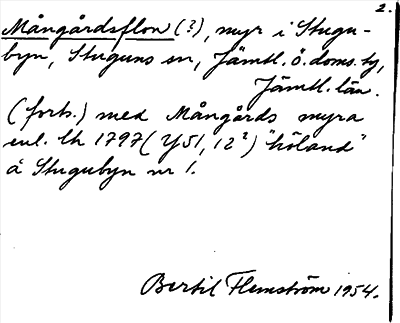 2.
Mångårdsflon (?), myr i Stugu-
byn, Stuguns sn, Jämtl. ö. doms.tg,
Jämtl. län.
(forts.) med Mångårds myra
enl. lh 1797 (Y51, 12²) "höland"
å Stugubyn nr 1.
Bertil Flemström 1954.